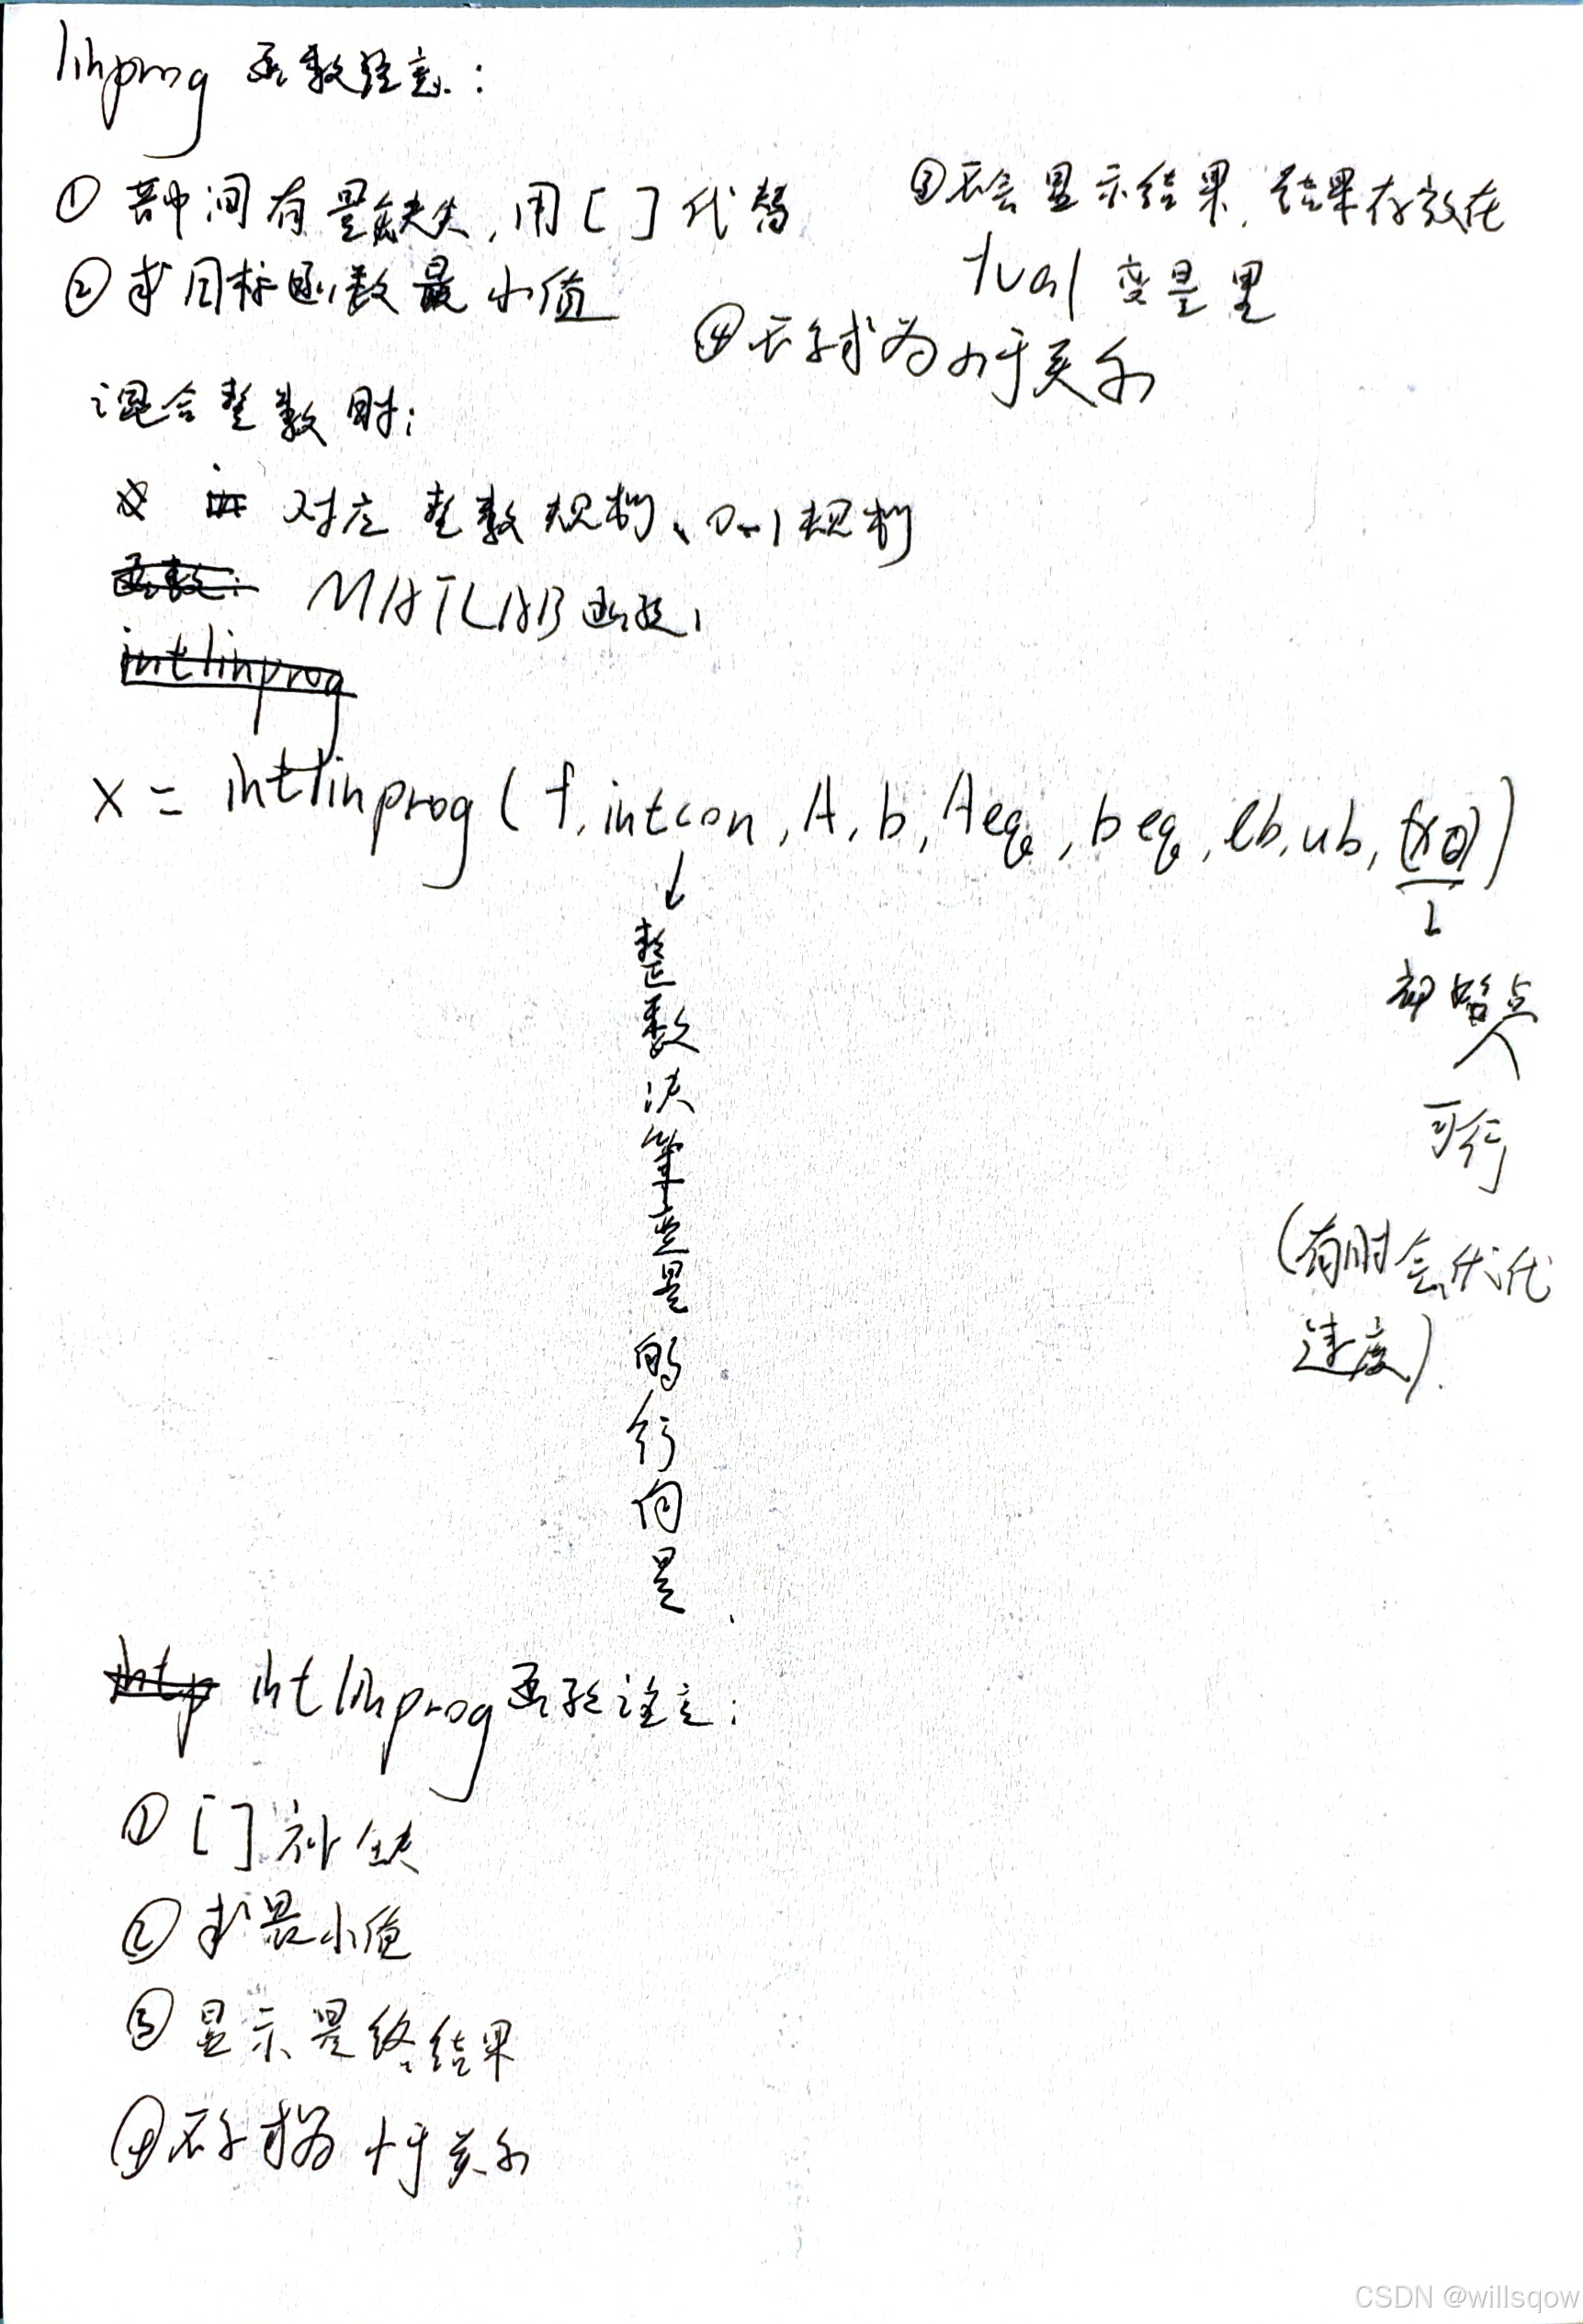 linprog 函数注意:
① 若中间有量缺失,用[ ]代替
② 求目标函数最小值
③ 不会显示结果,结果存放在
fval 变量里
④ 不等式为小于关系
混合整数时:
对应整数规划、0-1规划
函数:
MATLAB函数:
intlinprog
x = intlinprog(f, intcon, A, b, Aeq, beq, lb, ub, (x0))
↓
整数决策变量的行向量
↓
初始点
可行
(有时会优化
速度).
intp intlinprog函数注意:
① [ ] 补缺
② 求最小值
③ 显示最终结果
④ 不等式为小于关系
CSDN @willsqow